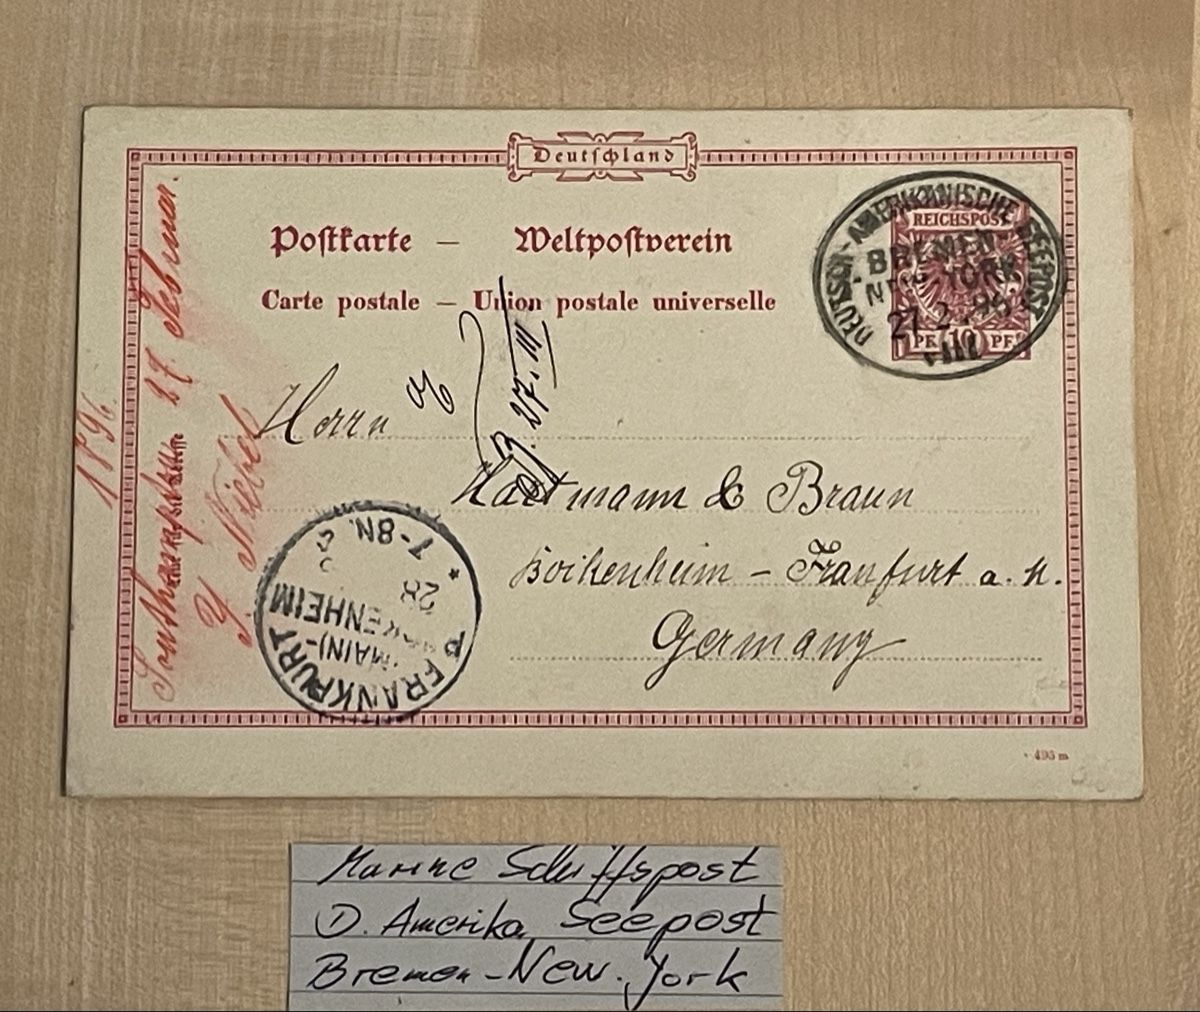 Deutschland
Postkarte — Weltpostverein
Carte postale — Union postale universelle
DEUTSCH-AMERIKANISCHE SEEPOST
BREMEN
NEW YORK
27 2 96
VIII
REICHSPOST
PF 10 PF
27. III
Herrn
Hartmann & Braun
Bockenheim - Frankfurt a. M.
Germany
Southampton 27 Februar
1896.
FRANKFURT
(MAIN)-
BOCKENHEIM
28 2
7-8N.
495 m
Marine Schiffspost
D. Amerika Seepost
Bremen - New. York